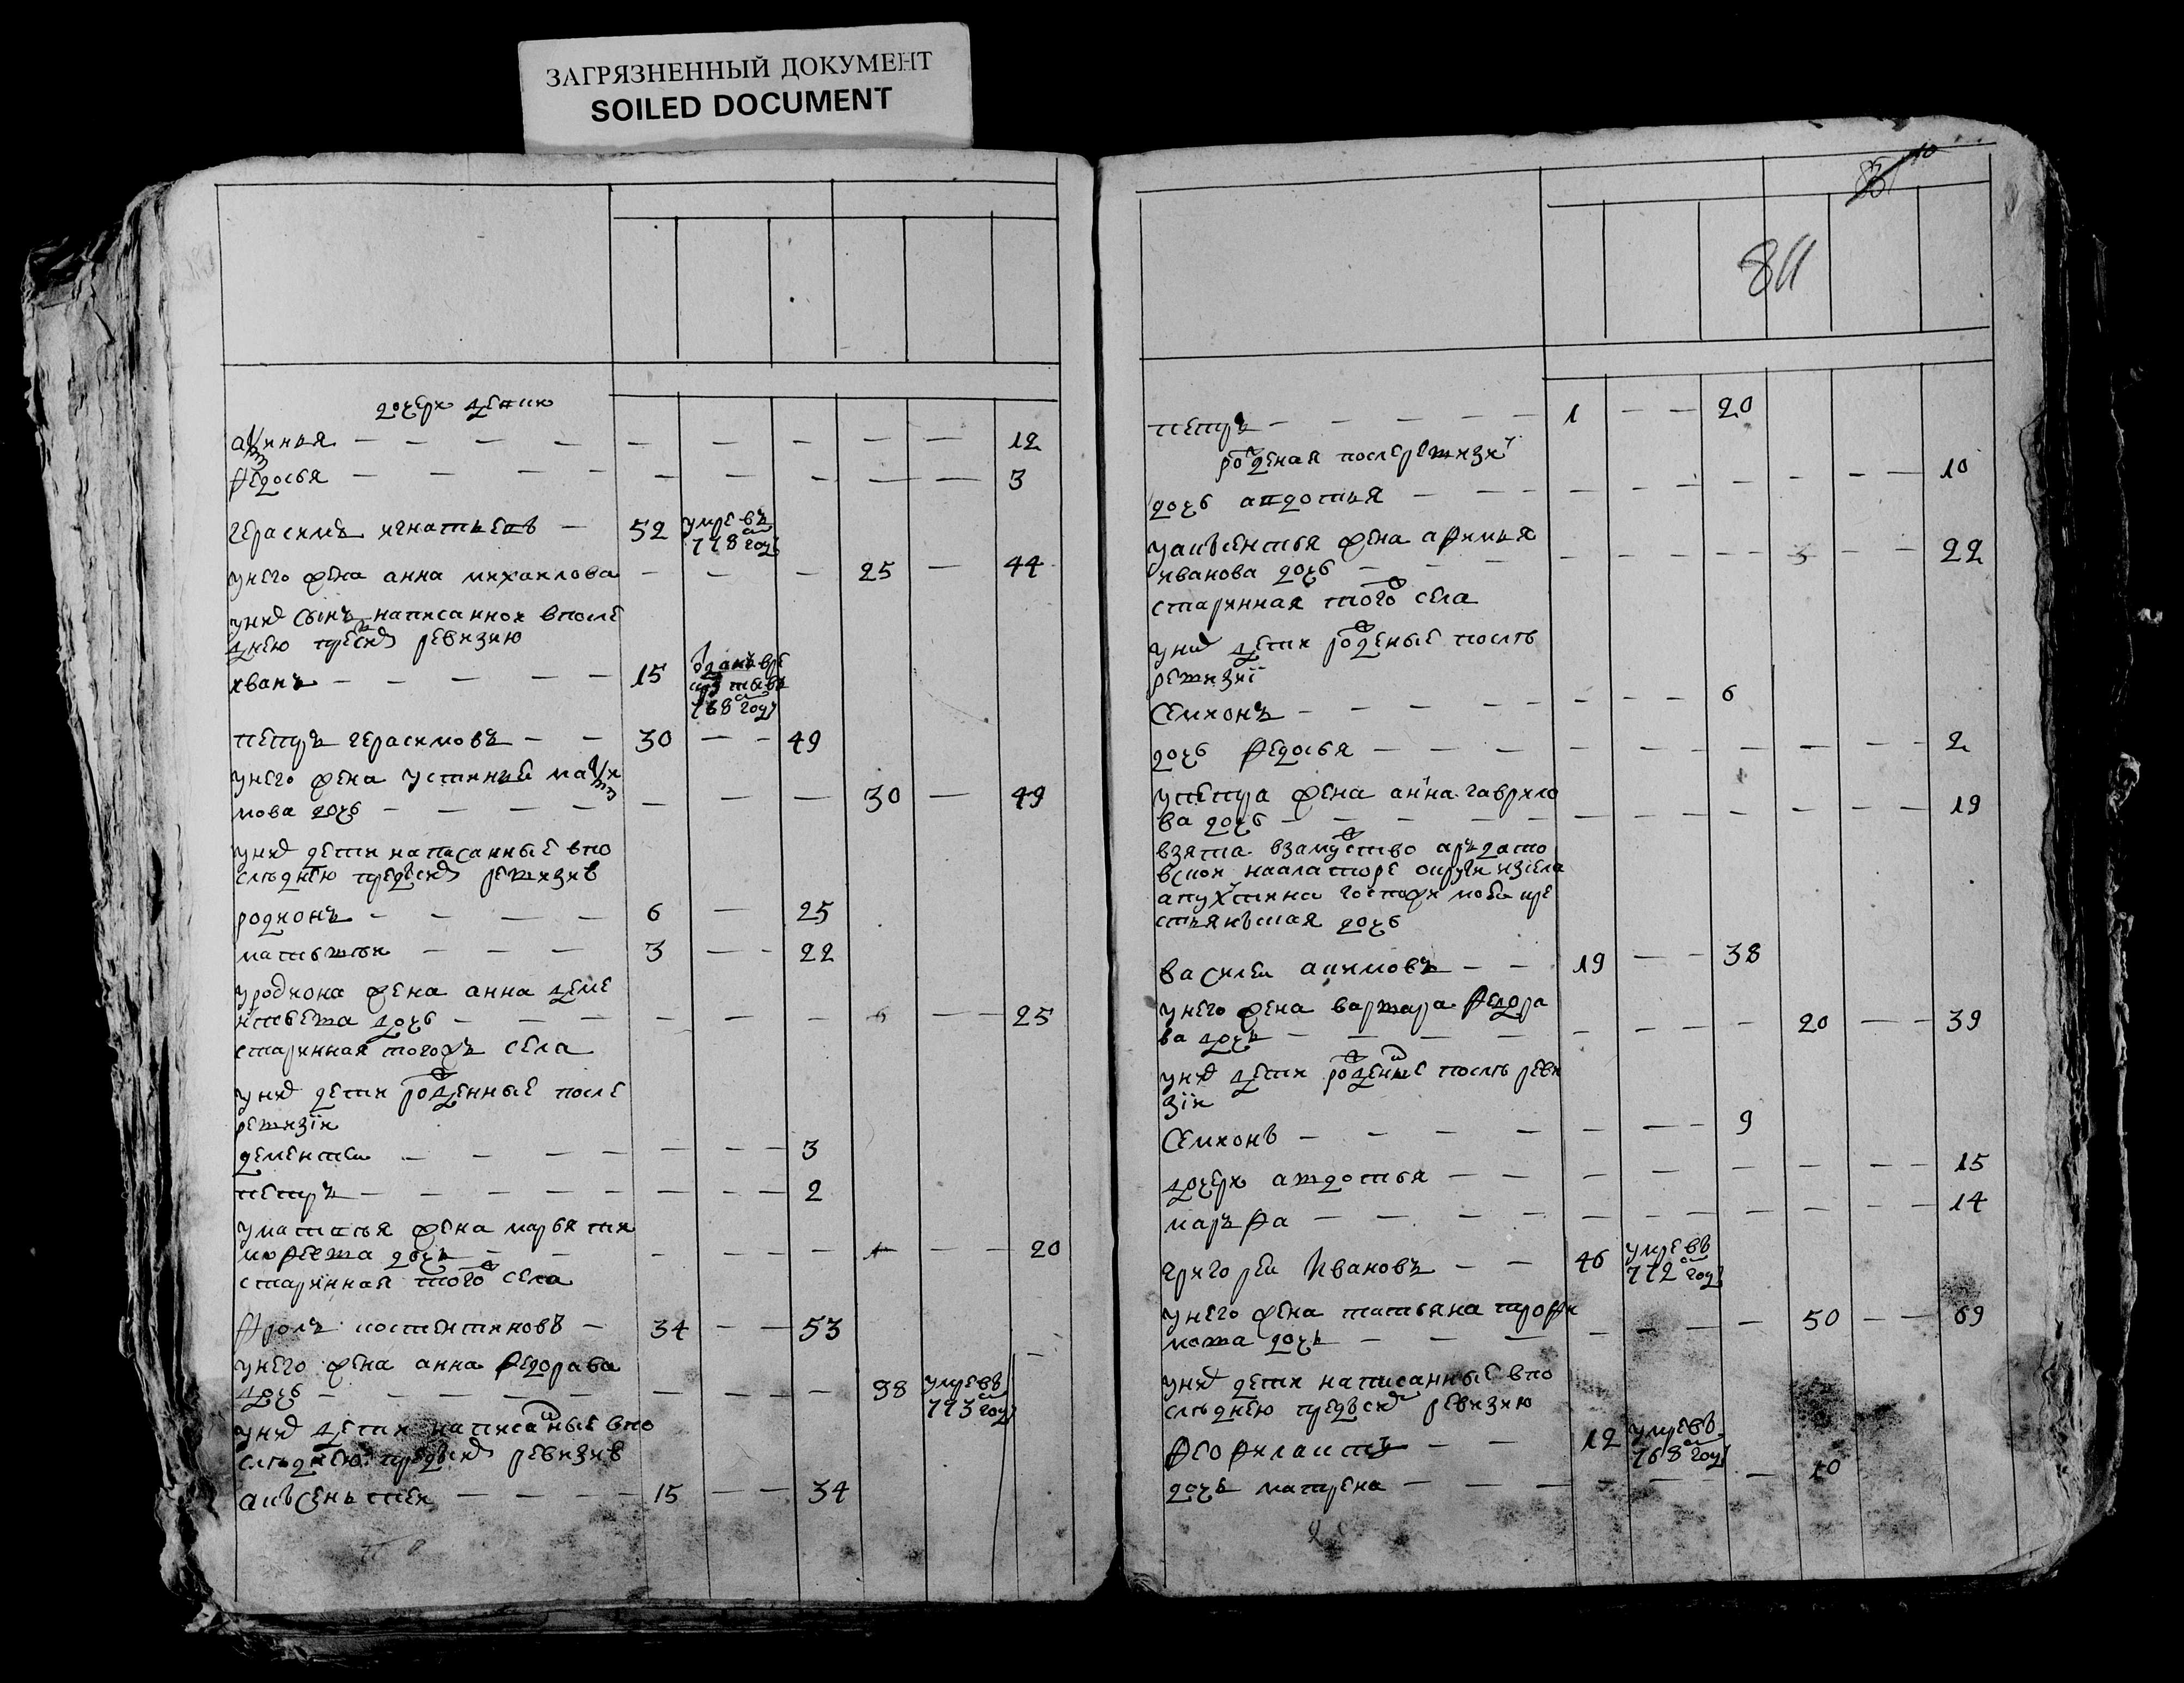 ЗАГРЯЗНЕННЫЙ ДОКУМЕНТ
SOILED DOCUMENT
дочери девки
аксинья — — — — — — — — — 12
федосья — — — — — — — — — 3
герасимъ игнатьевъ — 52 умре въ
778 году
унего жена анна михаилова — — — 25 — 44
унихъ сынъ написанной впосле
днею пресихъ ревизию
иванъ — — — — — 15 отданъ в ре
круты въ
768 году
петръ герасимовъ — — 30 — — 49
унего жена устинья макси
мова дочь — — — — — — — 30 — 49
унихъ дети написанные впо
следнею предъсихъ ревизию
родионъ — — — — 6 — 25
матвеи — — — 3 — — 22
уродиона жена анна деме
нтьева дочь — — — — — — 6 — — 25
старинная тогожъ села
унихъ дети рожденные после
ревизии
дементеи — — — — — — — 3
петръ — — — — — — — — 2
уматвея жена марья ти
мофеева дочь — — — — — 1 — — 20
старинная того ж села
фролъ костентиновъ — 34 — — 53
унего жена анна федорава
дочь — — — — — — — — 38 умре въ
773 году
унихъ дети написаные впо
следнею предъсихъ ревизию
авъсеньтеи — — — — 15 — — 34
84
петръ — — — — — 1 — — 20
рожденая послеревизии
дочь авдотья — — — — — — — — — 10
уавсентья жена афимья
иванова дочь — — — — — — — 3 — — 22
старинная того ж села
унихъ дети рожденые после
ревизии
Семионъ — — — — — — — — 6
дочь федосья — — — — — — — — — — 2
упетра жена анна гаврило
ва дочь — — — — — — — — — — 19
взята взамужство аръзамо
околки господи крe
стьянъская дочь
василеи акимовъ — — 19 — — 38
унего жена варвара федора
ва дочь — — — — — — — — 20 — — 39
унихъ дети рожденые после реви
зии
Семионъ — — — — — — — 9
дочери авдотья — — — — — — — — 15
маръфа — — — — — — — — — — 14
григореи Ивановъ — — 46 умре въ
772 году
унего жена татьяна трофи
мова дочь — — — — — — — 50 — — 69
унихъ дети написанные впо
следнею предъсихъ ревизию
феофилактъ — — 12 умре въ
768 году
дочь матрена — — — — — — 10